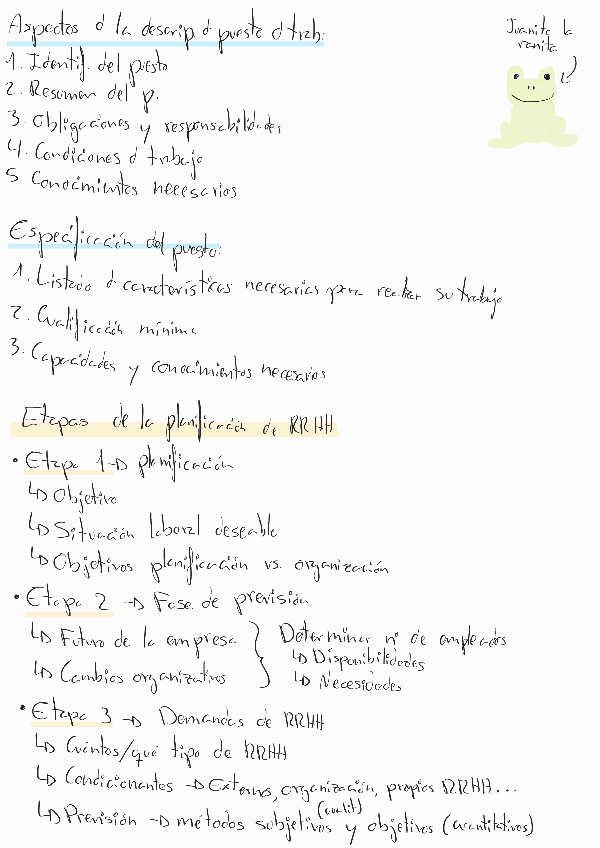 Aspectos d la descrip d puesto d trab:
Juanita la
ranita
1. Identif. del puesto
2. Resumen del p.
3. Obligaciones y responsabilidades
4. Condiciones d trabajo
5 Conocimientos necesarios
Especificación del puesto:
1. Listado d características necesarias para realizar su trabajo
2. Cualificación mínima
3. Capacidades y conocimientos necesarios
Etapas de la planificación de RRHH
• Etapa 1 → planificación
↳ Objetivo
↳ Situación laboral deseable
↳ Objetivos planificación vs. organización
• Etapa 2 → Fase de previsión
↳ Futuro de la empresa } Determinar nº de empleados
↳ Disponibilidades
↳ Cambios organizativos
↳ Necesidades
• Etapa 3 → Demandas de RRHH
↳ Cuántos/qué tipo de RRHH
↳ Condicionantes → Externos, organización, propios RRHH...
↳ Previsión → métodos subjetivos (cualit) y objetivos (cuantitativos)